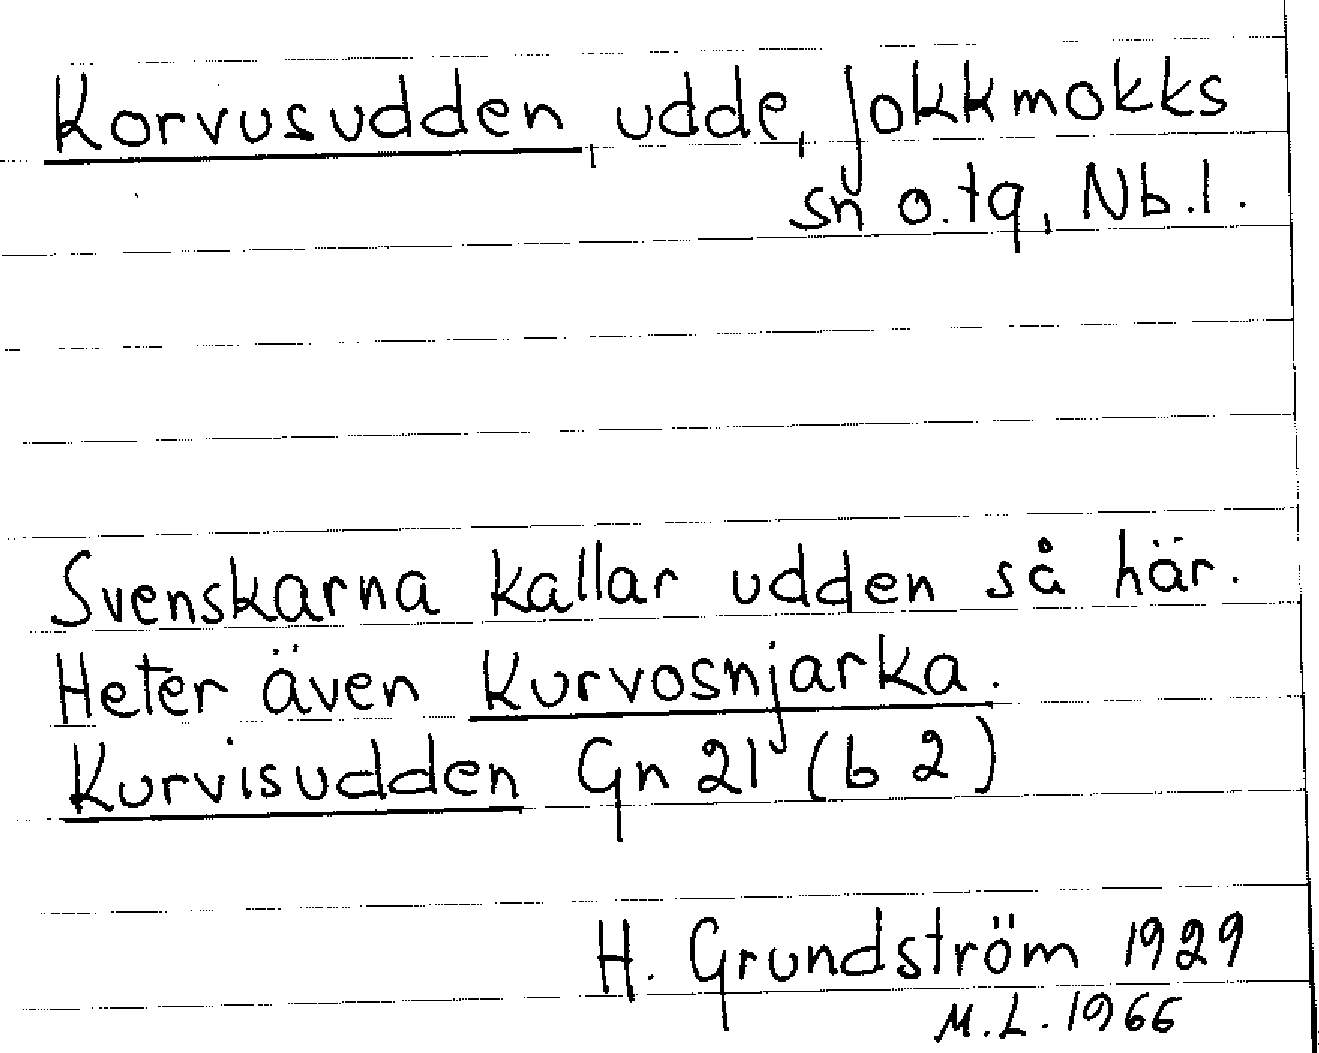 Korvusudden, udde, Jokkmokks
sn o. tg, Nb. l.
Svenskarna kallar udden så här.
Heter även Kurvosnjarka.
Kurvisudden Gn 21 (b 2)
H. Grundström 1929
M.L. 1966